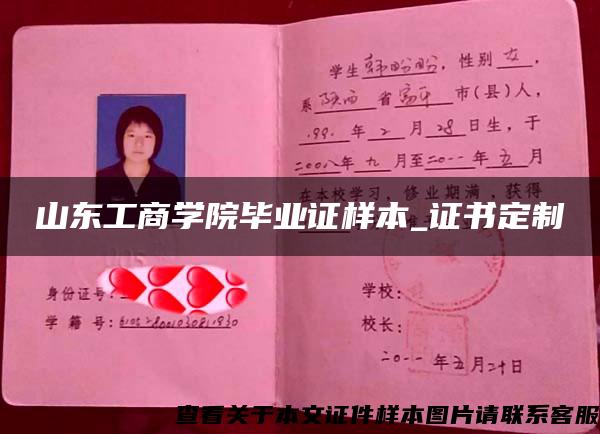 学生韩盼盼，性别女，
系陕西省富平市(县)人，
1991年2月28日生，于
二00八年九月至二0一一年五月
在本校学习，修业期满，获得
山东工商学院毕业证样本_证书定制
身份证号:
学籍号:
学校:
校长:
二0一一年五月二十日
查看关于本文证件样本图片请联系客服